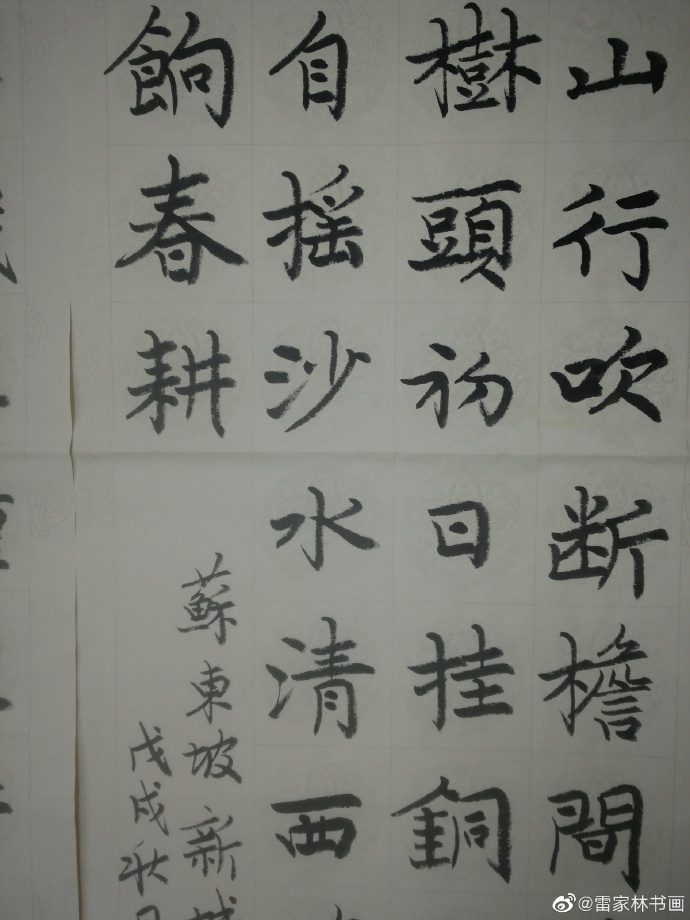 山行吹断檐間
樹頭初日挂銅
自摇沙水清西
餉春耕
蘇東坡新
戊戌秋
@雷家林书画